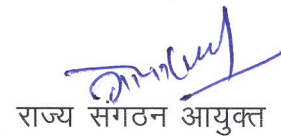 राज्य संगठन आयुक्त